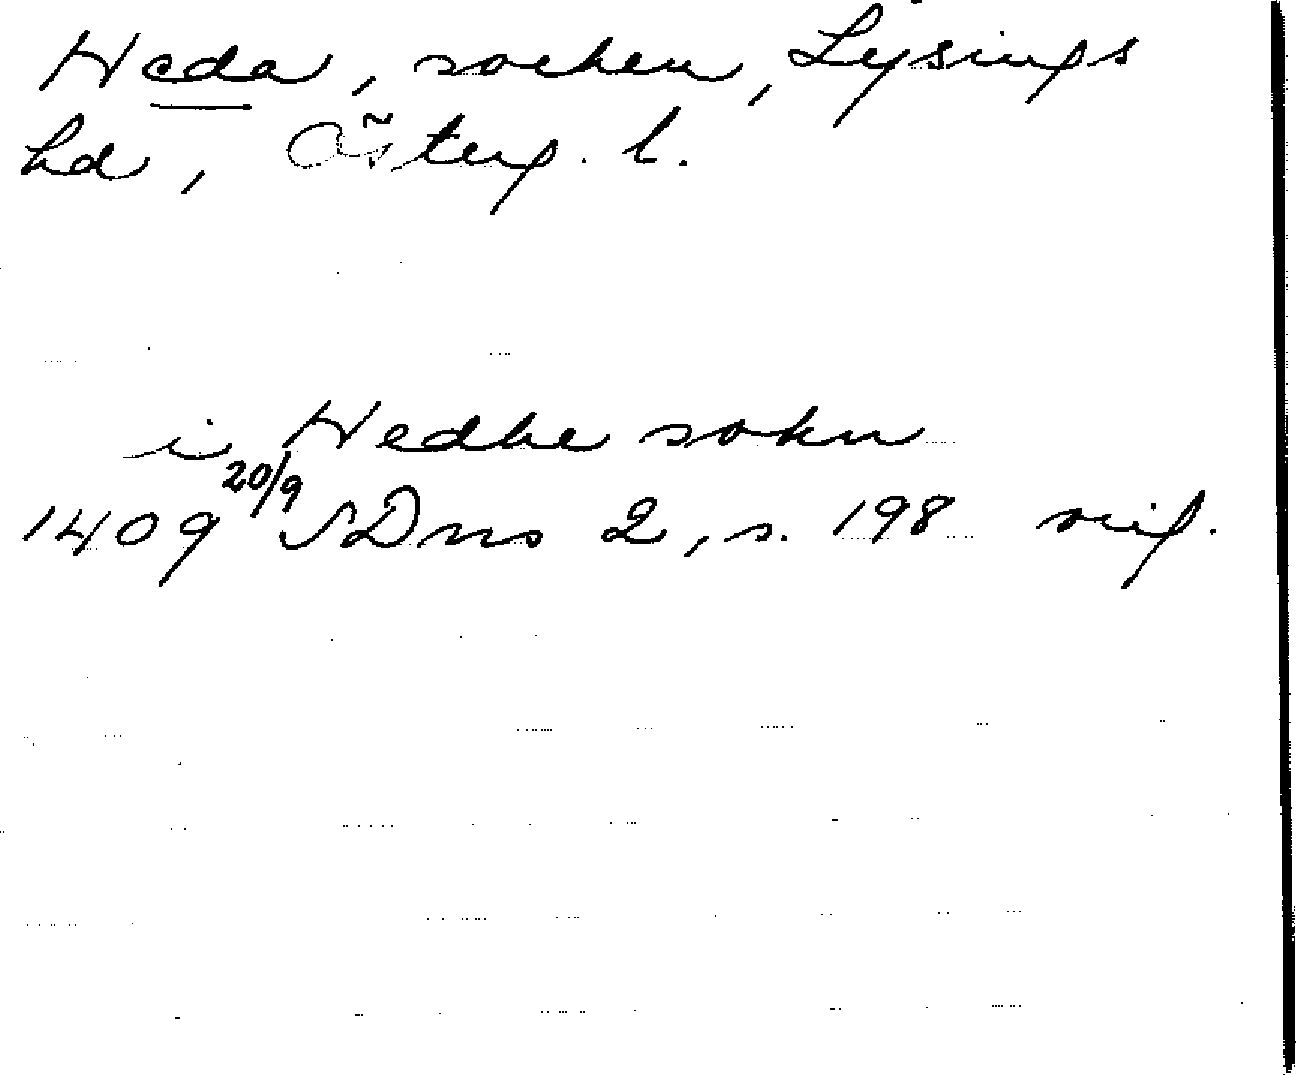 Heda, socken, Lysings
hd, Österg. l.
i Hedhe sokn
1409 20/9 SDns 2, s. 198 sigf.